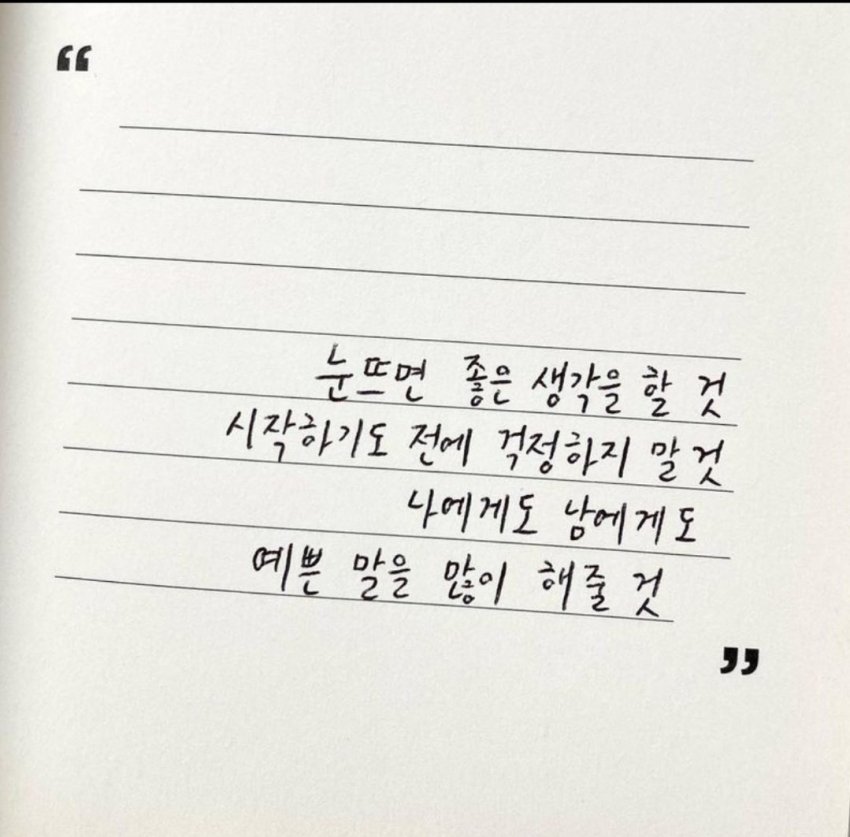 “
눈뜨면 좋은 생각을 할 것
시작하기도 전에 걱정하지 말것
나에게도 남에게도
예쁜 말을 많이 해줄 것
”